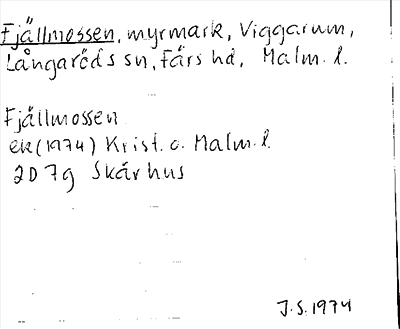 Fjällmossen, myrmark, Viggarum,
Långaröds sn, Färs hd, Malm. l.
Fjällmossen
ek (1974) Krist. o. Malm. l.
2D 7g Skärhus
J.S. 1974